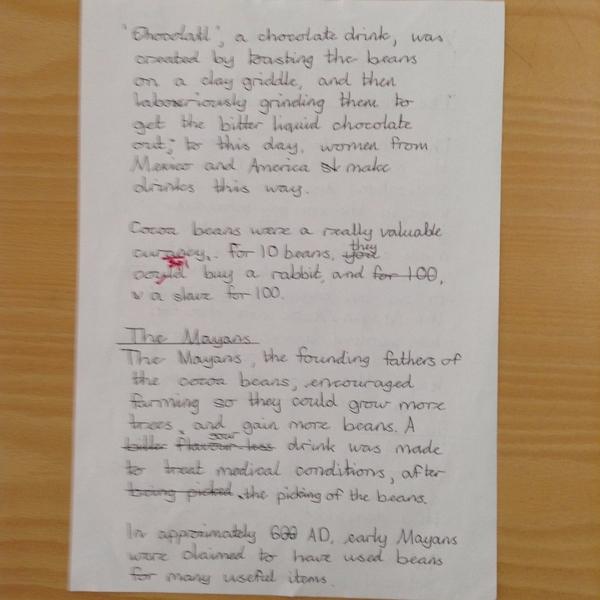 'Chocolatl', a chocolate drink, was
created by toasting the beans
on a clay griddle, and then
laboseriously grinding them to
get the bitter liquid chocolate
out; to this day, women from
Mexico and America make
drinks this way.
Cocoa beans were a really valuable
for 10 beans, they
could buy a rabbit, and for 100,
a slave for 100.
The Mayans
The Mayans, the founding fathers of
the cocoa beans, encouraged
farming so they could grow more
trees, and gain more beans. A
bitter flavour less sour drink was made
to treat medical conditions, after
being picked the picking of the beans.
In approximately 600 AD, early Mayans
were claimed to have used beans
for many useful items.